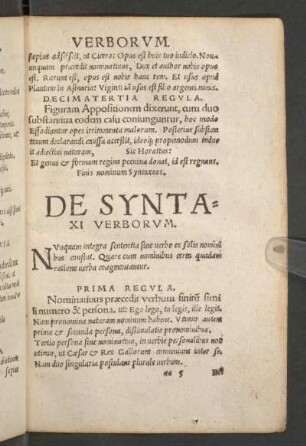 VERBORVM.
sæpius adsciscit, ut Cicero: Opus est huic tuo iudicio. Non
nunquam præcedit nominatiuus, Dux et author nobis opus
est. Rarum est, opus est nobis hanc rem. Et usus apud
Plautum in Asinaria: Viginti iā usus est filio argenti minis.
DECIMATERTIA REGVLA.
Figuram Appositionem dixerunt, cum duo
substantiua eodem casu coniunguntur, hoc modo
Effodiuntur opes irritamenta malorum. Posterius substan
tiuum declarandi causa accessit, ideoq; propemodum indu
it adiectiui naturam, Sic Horatius:
Et genus & formam regina pecunia donat, id est regnans.
Finis nominum Syntaxeos.
DE SYNTA-
XI VERBORVM.
NVnquam integra sententia sine uerbo ex solis nomini
bus constat. Quare cum nominibus certa quadam
ratione uerba coagmentantur.
PRIMA REGVLA.
Nominatiuus præcedit verbum finitū simi
li numero & persona, ut: Ego lego, tu legis, ille legit.
Nam pronomina naturam nominum habent. Vtimur autem
prima & secunda persona, distinctionis pronominibus.
Tertia persona sine nominatiuo, in uerbis personalibus non
utimur, ut Cæsar & Rex Gallorum conueniunt inter se.
Nam duo singularia postulant plurale uerbum.
aa 5